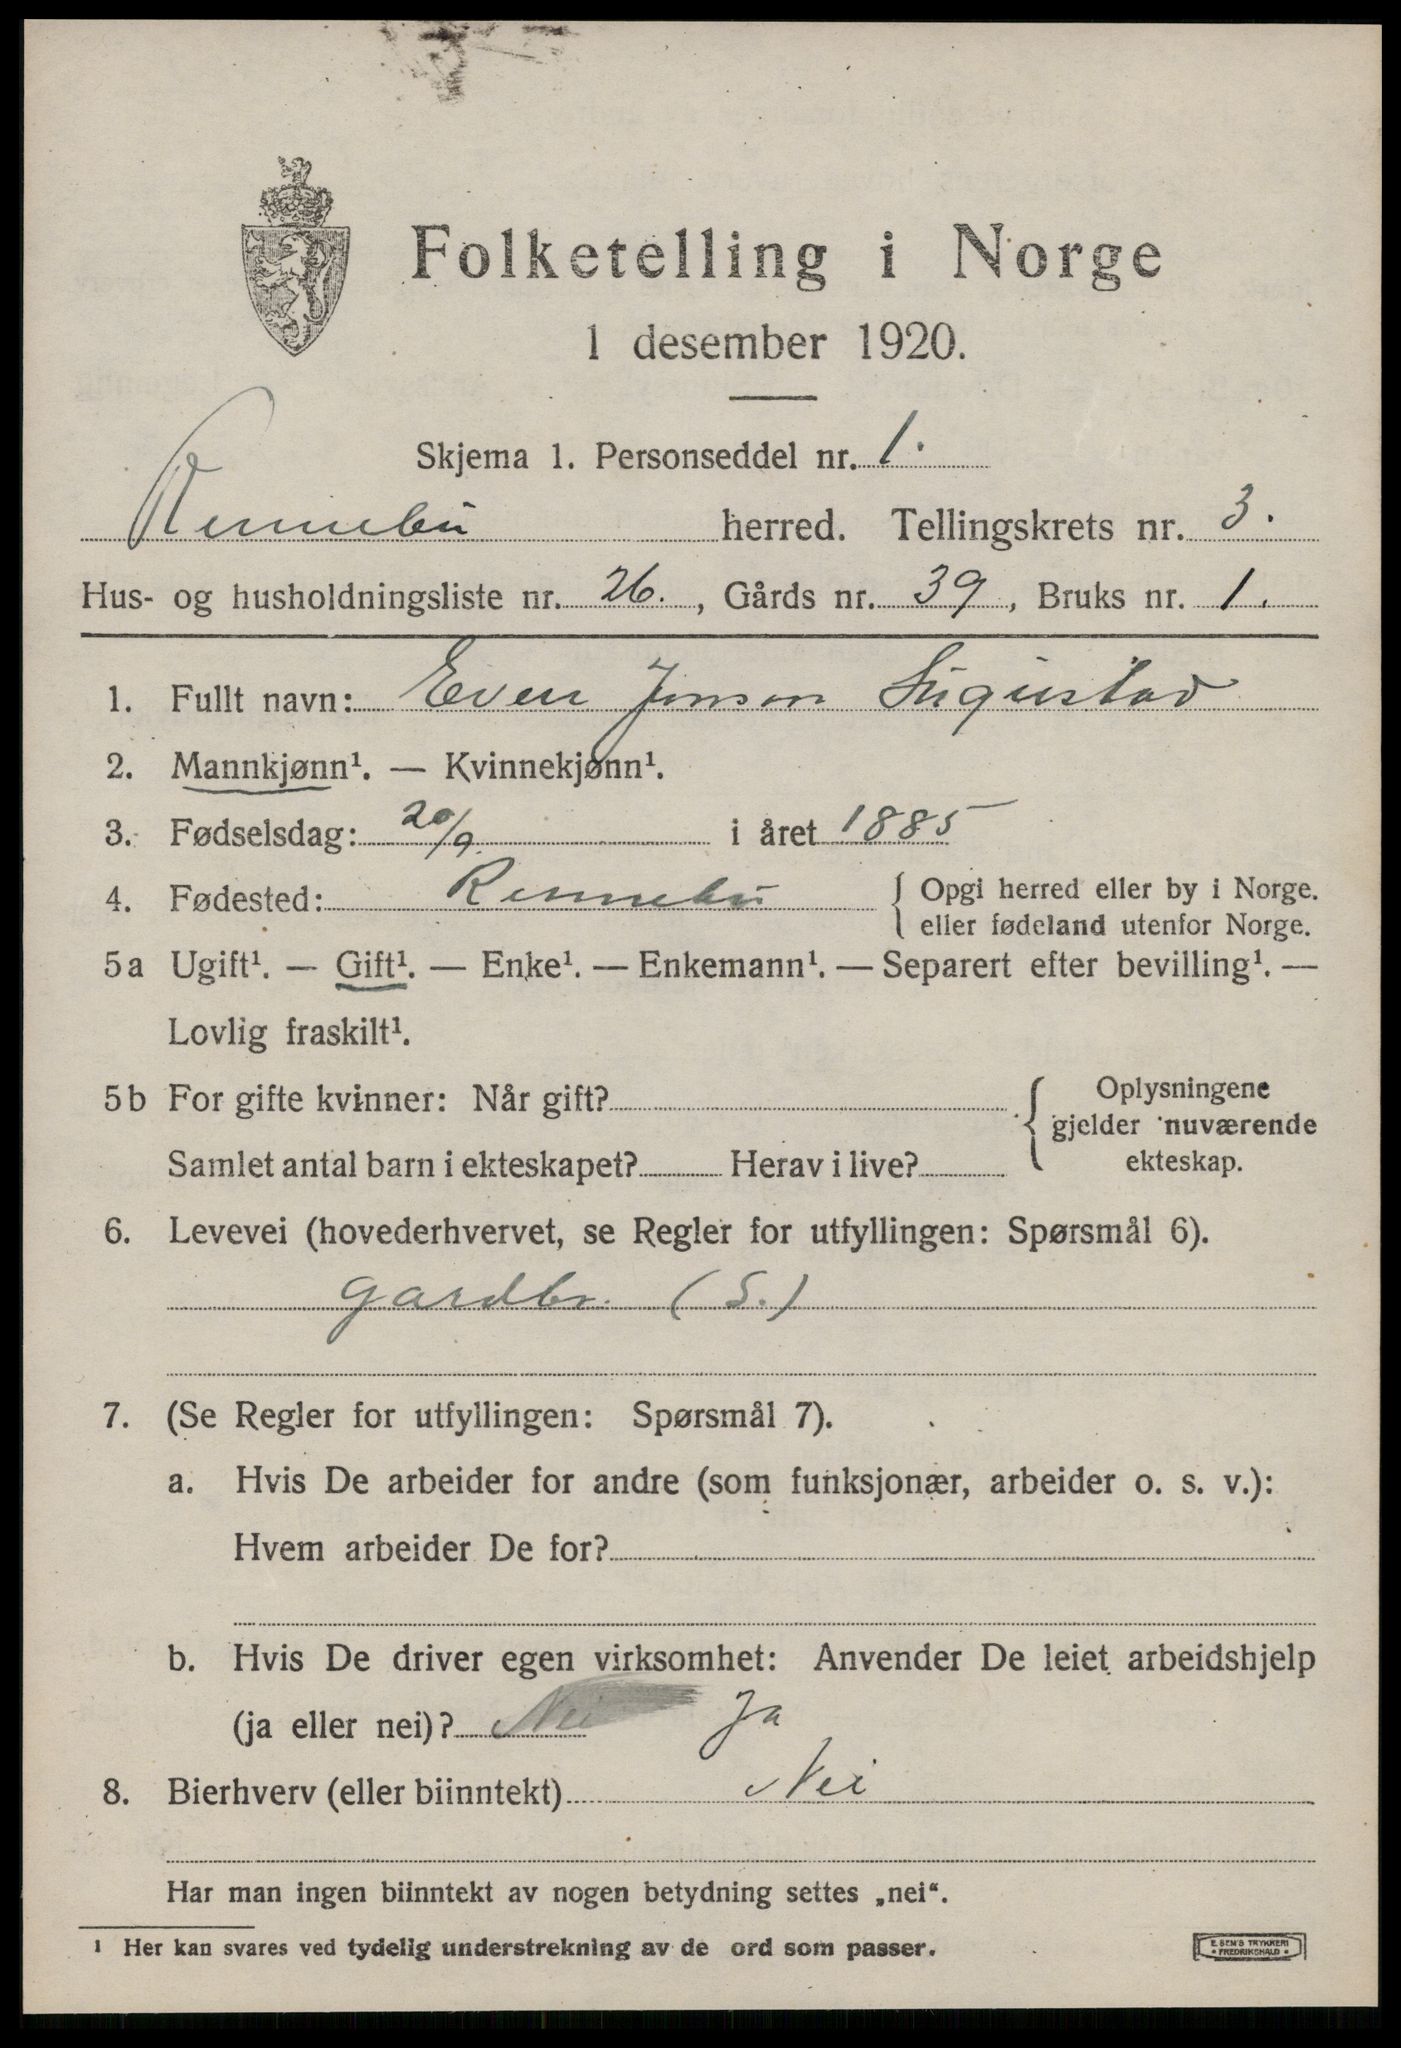 Folketelling i Norge
1 desember 1920.
Skjema 1. Personseddel nr. 1.
Rennebu herred. Tellingskrets nr. 3.
Hus- og husholdningsliste nr. 26., Gårds nr. 39, Bruks nr. 1.
1. Fullt navn: Even Jonson
2. Mannkjønn¹. — Kvinnekjønn¹.
3. Fødselsdag: 20/9. i året 1885
4. Fødested: Rennebu { Opgi herred eller by i Norge.
eller fødeland utenfor Norge.
5a Ugift¹. — Gift¹. — Enke¹. — Enkemann¹. — Separert efter bevilling¹. —
Lovlig fraskilt¹.
5b For gifte kvinner: Når gift? { Oplysningene
gjelder nuværende
Samlet antal barn i ekteskapet? Herav i live? ekteskap.
6. Levevei (hovederhvervet, se Regler for utfyllingen: Spørsmål 6).
Gardbr. (S.)
7. (Se Regler for utfyllingen: Spørsmål 7).
a. Hvis De arbeider for andre (som funksjonær, arbeider o. s. v.):
Hvem arbeider De for?
b. Hvis De driver egen virksomhet: Anvender De leiet arbeidshjelp
(ja eller nei)? Nei Ja
8. Bierhverv (eller biinntekt) Nei
Har man ingen biinntekt av nogen betydning settes „nei“.
¹ Her kan svares ved tydelig understrekning av de ord som passer.
E. SEM'S TRYKKERI
• FREDRIKSHALD •